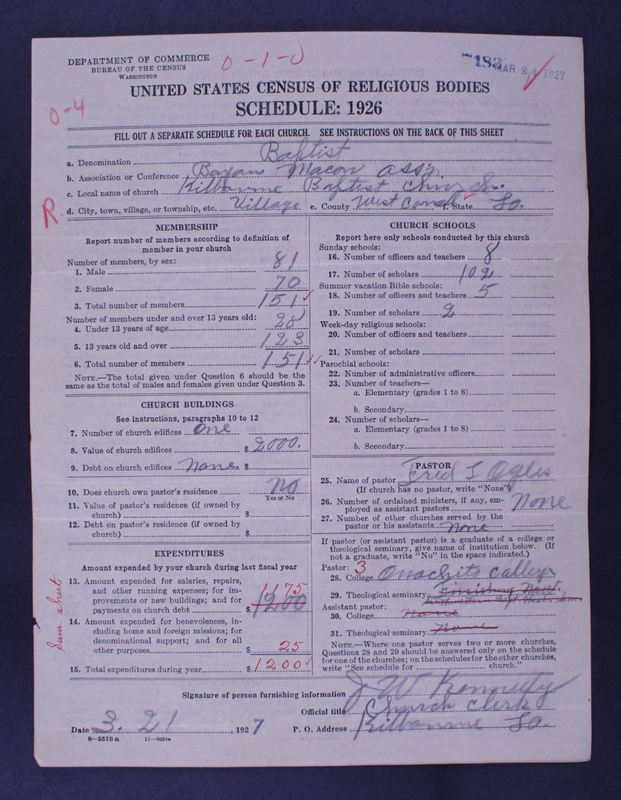 DEPARTMENT OF COMMERCE
BUREAU OF THE CENSUS
WASHINGTON
0-1-0
183
MAR 24 1927
0-4
UNITED STATES CENSUS OF RELIGIOUS BODIES
SCHEDULE: 1926
FILL OUT A SEPARATE SCHEDULE FOR EACH CHURCH. SEE INSTRUCTIONS ON THE BACK OF THIS SHEET
a. Denomination Baptist
b. Association or Conference Macon assn.
c. Local name of church Kilbourne Baptist Church.
R
d. City, town, village, or township, etc. Village e. County West Carroll f. State La.
MEMBERSHIP
Report number of members according to definition of
member in your church
Number of members, by sex:
1. Male 81
2. Female 70
3. Total number of members 151
Number of members under and over 13 years old:
4. Under 13 years of age 28
5. 13 years old and over 123
6. Total number of members 151
NOTE.—The total given under Question 6 should be the
same as the total of males and females given under Question 3.
CHURCH BUILDINGS
See instructions, paragraphs 10 to 12
7. Number of church edifices one
8. Value of church edifices $ 2000.
9. Debt on church edifices None $
10. Does church own pastor's residence No
Yes or No
11. Value of pastor's residence (if owned by
church) $
12. Debt on pastor's residence (if owned by
church) $
EXPENDITURES
Amount expended by your church during last fiscal year
Sum sheet
13. Amount expended for salaries, repairs,
and other running expenses; for im-
provements or new buildings; and for
payments on church debt $ 1200 1175
14. Amount expended for benevolences, in-
cluding home and foreign missions; for
denominational support; and for all
other purposes $ 25
15. Total expenditures during year $ 1200
CHURCH SCHOOLS
Report here only schools conducted by this church
Sunday schools:
16. Number of officers and teachers 8
17. Number of scholars 102
Summer vacation Bible schools:
18. Number of officers and teachers 5
19. Number of scholars 2
Week-day religious schools:
20. Number of officers and teachers
21. Number of scholars
Parochial schools:
22. Number of administrative officers
23. Number of teachers—
a. Elementary (grades 1 to 8)
b. Secondary
24. Number of scholars—
a. Elementary (grades 1 to 8)
b. Secondary
PASTOR
25. Name of pastor Fred L Ogles
(If church has no pastor, write "None")
26. Number of ordained ministers, if any, em-
ployed as assistant pastors None
27. Number of other churches served by the
pastor or his assistants None
If pastor (or assistant pastor) is a graduate of a college or
theological seminary, give name of institution below. (If
not a graduate, write "No" in the space indicated.)
Pastor: 3
28. College Ouachita College
29. Theological seminary
Assistant pastor:
30. College None
31. Theological seminary None
NOTE.—Where one pastor serves two or more churches,
Questions 28 and 29 should be answered only on the schedule
for one of the churches; on the schedules for the other churches,
write "See schedule for church."
Signature of person furnishing information J W Kennedy
Official title Church Clerk
Date 3-21, 1927 P. O. Address Kilbourne La.
8—5518 a